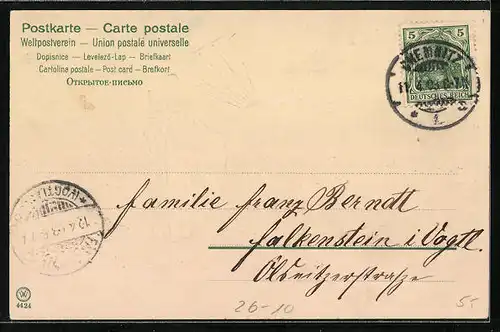 Postkarte — Carte postale
Weltpostverein — Union postale universelle
Dopisnice — Levelező-Lap — Briefkaart
Cartolina postale — Post card — Brefkort
Открытое-письмо
5 5
CHEMNITZ
DEUTSCHES REICH
Familie Franz Berndt
Falkenstein i. Vogtl.
Oelsnitzerstrasse
4424
26-10